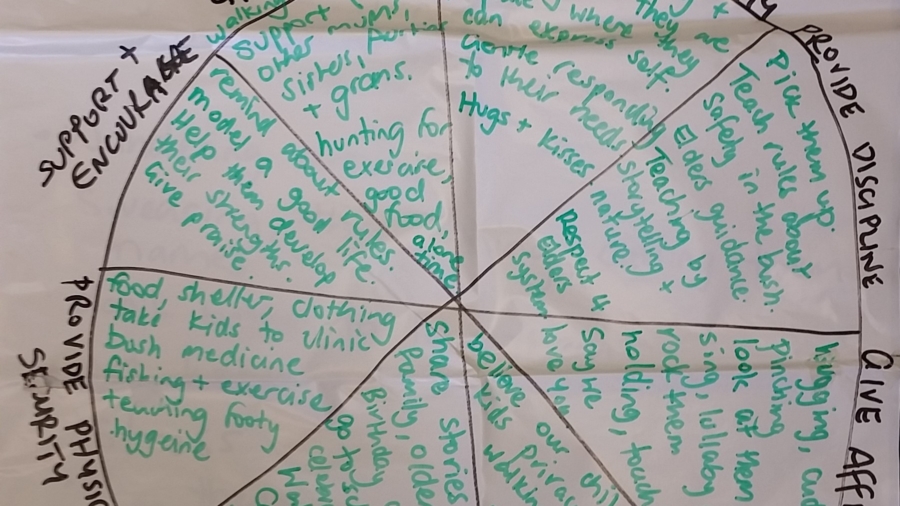 SUPPORT +
ENCOURAGE
remind about rules.
model a good life.
Help them develop
their strengths.
Give praise.
walking
support
other mums,
sisters,
+ grans.
hunting for
exercise,
good
food,
alone
time
can express self.
where they
they are
responding
to their needs
Hugs + kisses
PROVIDE DISCIPLINE
Pick them up.
Teach rules about
safety in the bush.
Elders guidance.
Teaching by
storytelling +
nature.
Respect 4
Elders
system
GIVE AFF
hugging, cud
pinching
look at them
sing, lullaby
rock them
holding, touch
Say we
love you
PROVIDE PHYSIC
SECURITY
food, shelter, clothing
take kids to clinic
bush medicine
fishing + exercise
footy
hygeine
share stories
family, older
Birthday
go to
believe our chil
kids